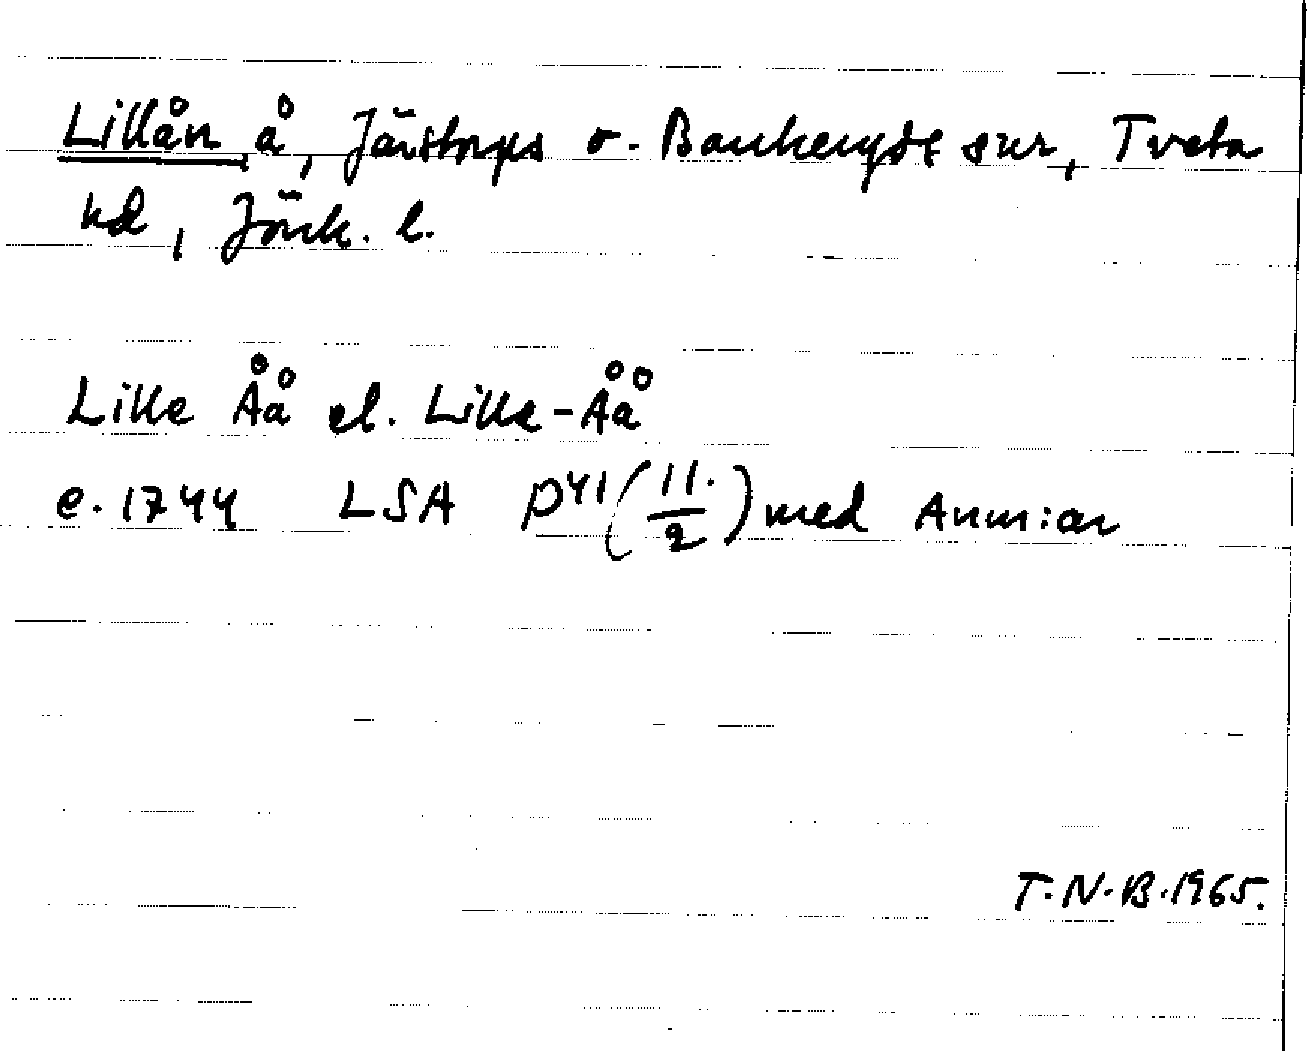 Lillån, å, Järstorps o. Bankeryds snr, Tveta
hd, Jönk. l.
Lille Åå el. Lilla-Åå
e. 1744 LSA P41 (11./2) med Anm:ar
T.N.B. 1965.